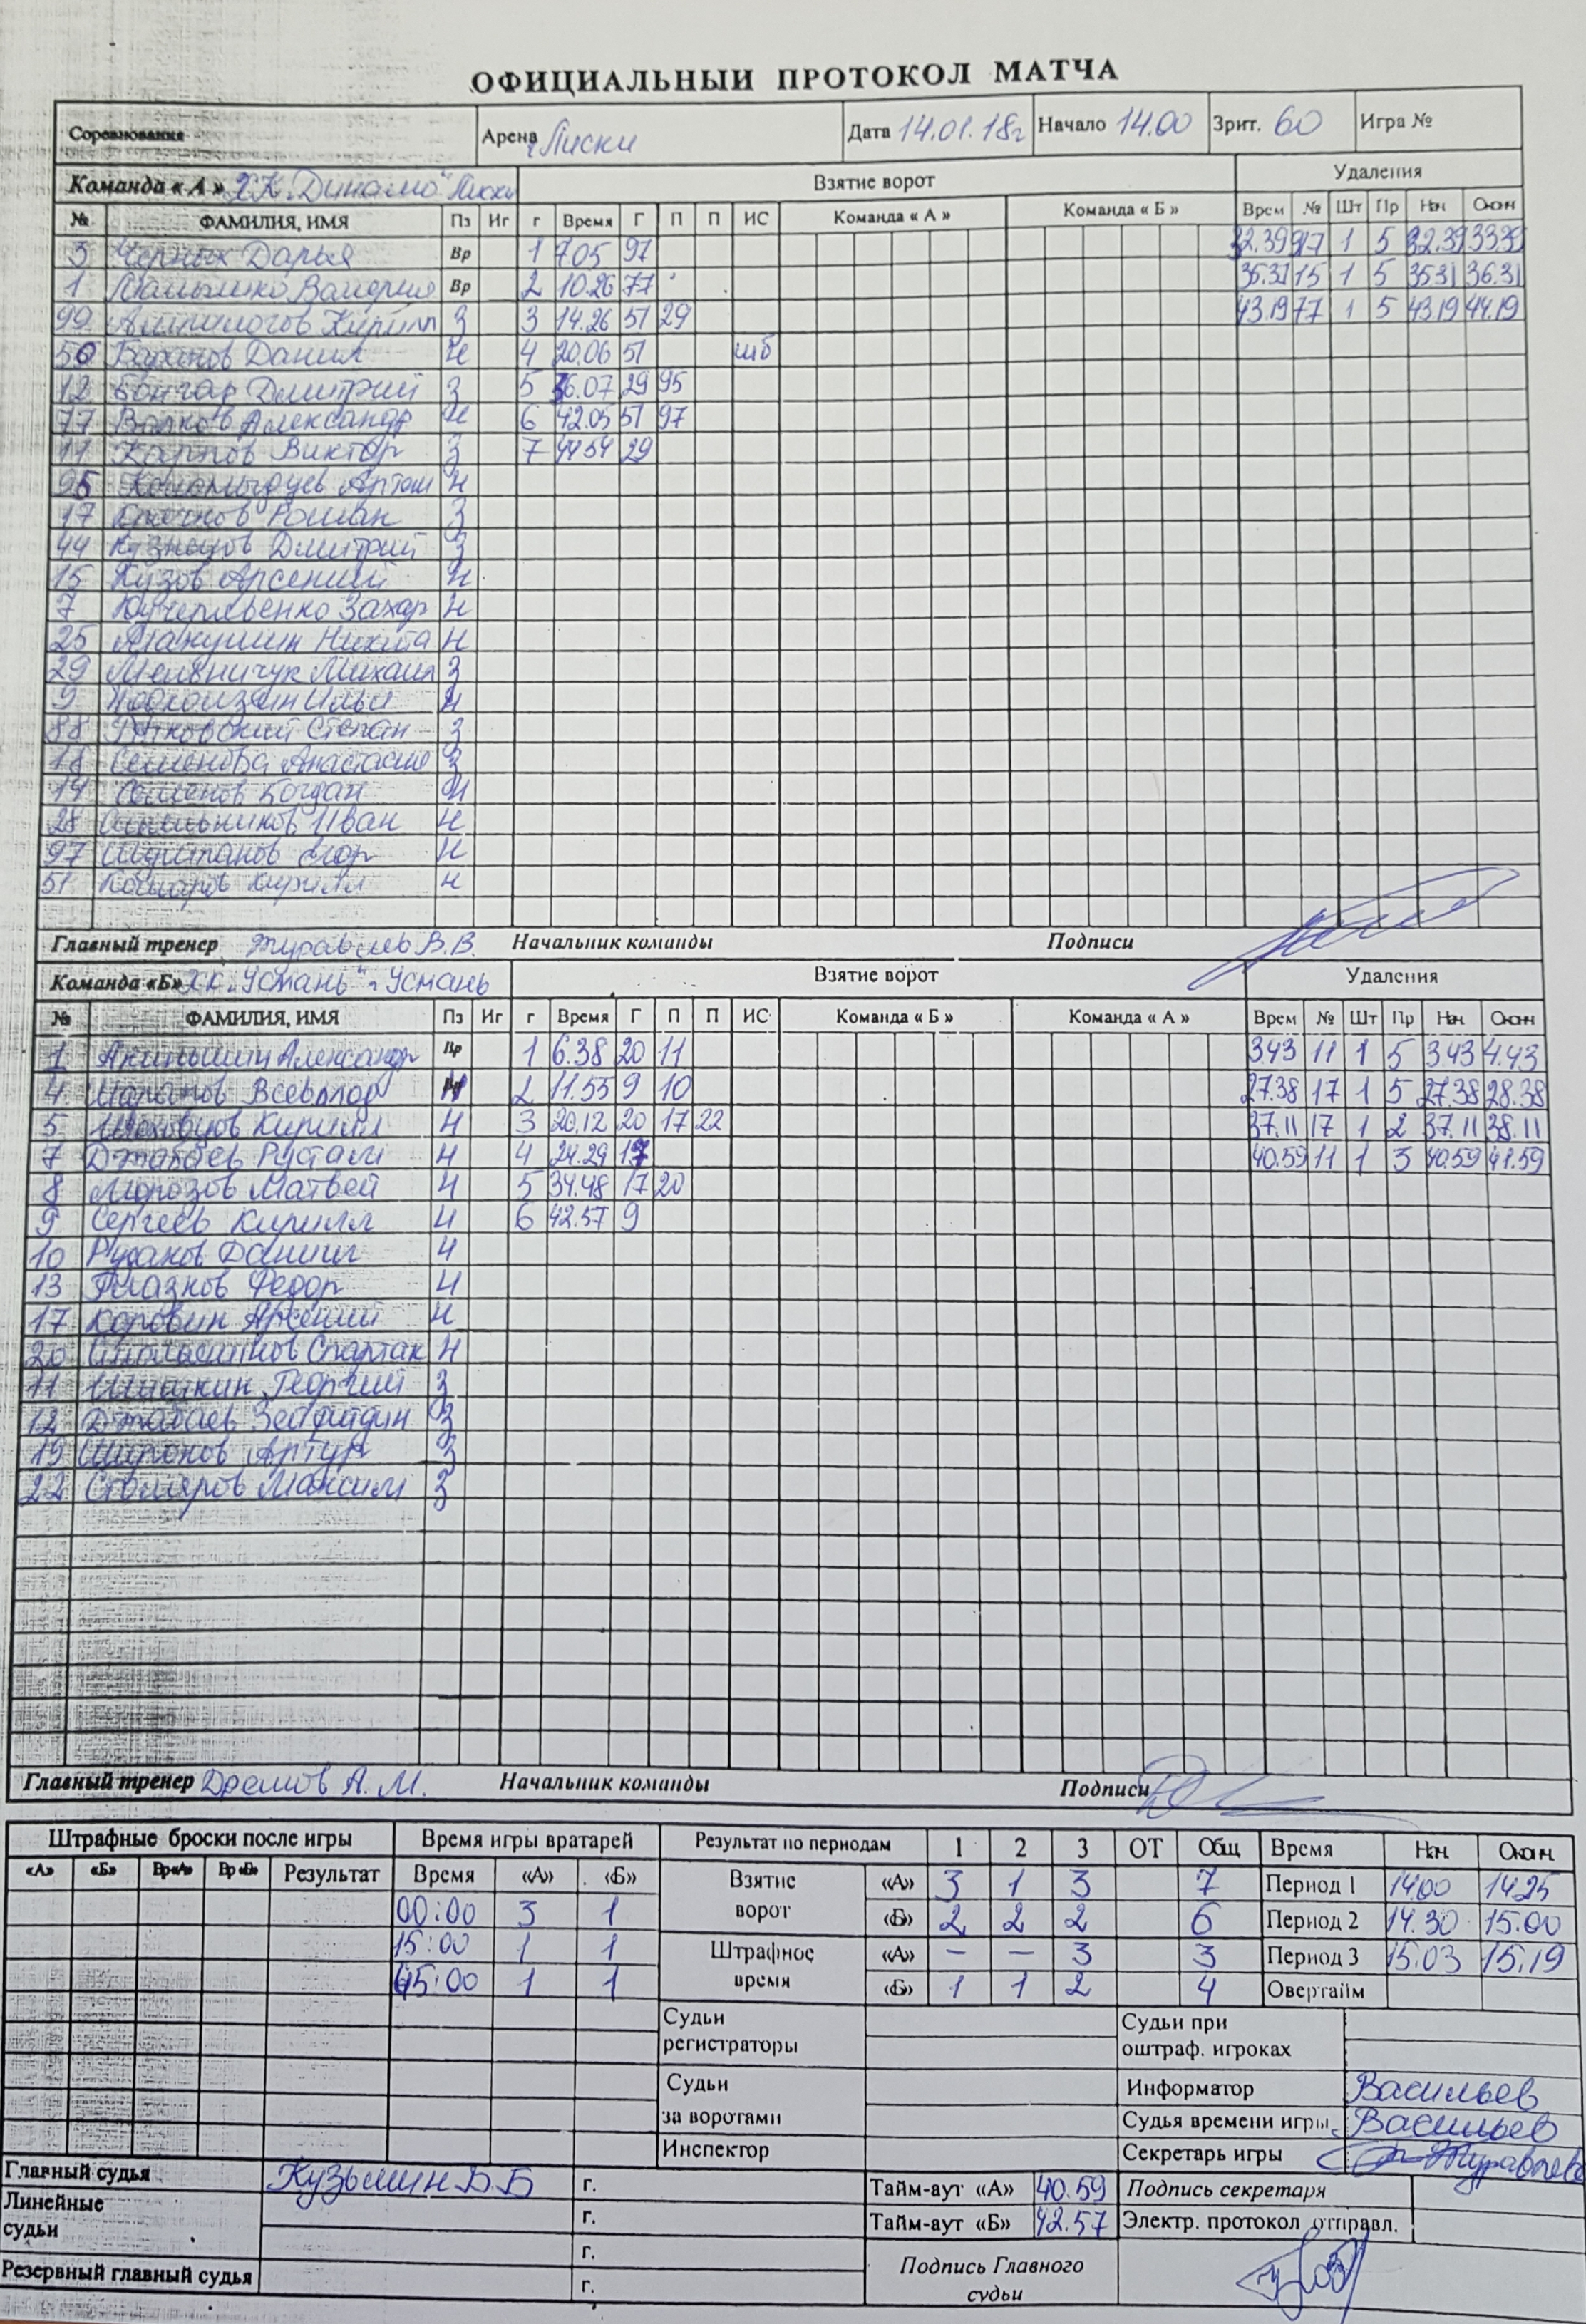 ОФИЦИАЛЬНЫЙ ПРОТОКОЛ МАТЧА
Соревнования Арена г. Лиски Дата 14.01.18г Начало 14.00 Зрит. 60 Игра №
Команда « А » ХК "Динамо" Лиски Взятие ворот Удаления
№ ФАМИЛИЯ, ИМЯ Пз Иг г Время Г П П ИС Команда « А » Команда « Б » Врем № Шт Пр Нач. Оконч
3 Черных Дарья Вр 1 7.05 97 32.39 97 1 5 32.39 33.39
1 Валерия Вр 2 10.26 77 35.31 15 1 5 35.31 36.31
99 Кирилл З 3 14.26 51 29 43.19 77 1 5 43.19 44.19
50 Данил Н 4 20.06 51 шб
12 Бонгар Дмитрий З 5 36.07 29 95
77 Волков Александр Н 6 42.05 51 97
11 Карпов Виктор З 7 44.54 29
95 Артем Н
17 Роман З
44 Кузнецов Дмитрий З
15 Кузов Арсений Н
7 Кучерявенко Захар Н
25 Никита Н
29 Мельничук Михаил З
9 Илья Н
88 Степан З
18 Семенова Анастасия З
14 Семенов Богдан Н
28 Иван Н
97 Егор Н
51 Кирилл Н
Главный тренер Журавлев В.В. Начальник команды Подписи
Команда «Б» ХК "Усмань" г. Усмань Взятие ворот Удаления
№ ФАМИЛИЯ, ИМЯ Пз Иг г Время Г П П ИС Команда « Б » Команда « А » Врем № Шт Пр Нач. Оконч
1 Александр Вр 1 6.38 20 11 3.43 11 1 5 3.43 4.43
4 Шаранов Всеволод 2 11.55 9 10 27.38 17 1 5 27.38 28.38
5 Кирилл Н 3 20.12 20 17 22 37.11 17 1 2 37.11 38.11
7 Джабаев Рустам Н 4 24.29 17 40.59 11 1 3 40.59 41.59
8 Морозов Матвей Н 5 34.48 17 20
9 Сергеев Кирилл Н 6 42.57 9
10 Русанов Даниил Н
13 Глазнов Федор Н
17 Коровин Арсений Н
20 Спартак Н
11 Шишкин Георгий З
12 Джабаев З
19 Широков Артур З
22 Столяров Максим З
Главный тренер Дремов А. М. Начальник команды Подписи
Штрафные броски после игры Время игры вратарей Результат по периодам 1 2 3 ОТ Общ Время Нач. Оконч.
«А» «Б» Вр«А» Вр«Б» Результат Время «А» «Б» Взятие ворот «А» 3 1 3 7 Период 1 14.00 14.25
00:00 3 1 «Б» 2 2 2 6 Период 2 14.30 15.00
15:00 1 1 Штрафное время «А» – – 3 3 Период 3 15.03 15.19
45:00 1 1 «Б» 1 1 2 4 Овертайм
Судьи регистраторы Судьи при оштраф. игроках
Судьи за воротами Информатор Васильев
Судья времени игры Васильев
Инспектор Секретарь игры Журавлева
Главный судья Кузьмин Б.Б г. Тайм-аут «А» 40.59 Подпись секретаря
Линейные судьи г. Тайм-аут «Б» 42.57 Электр. протокол отправл.
г. Подпись Главного судьи
Резервный главный судья г.